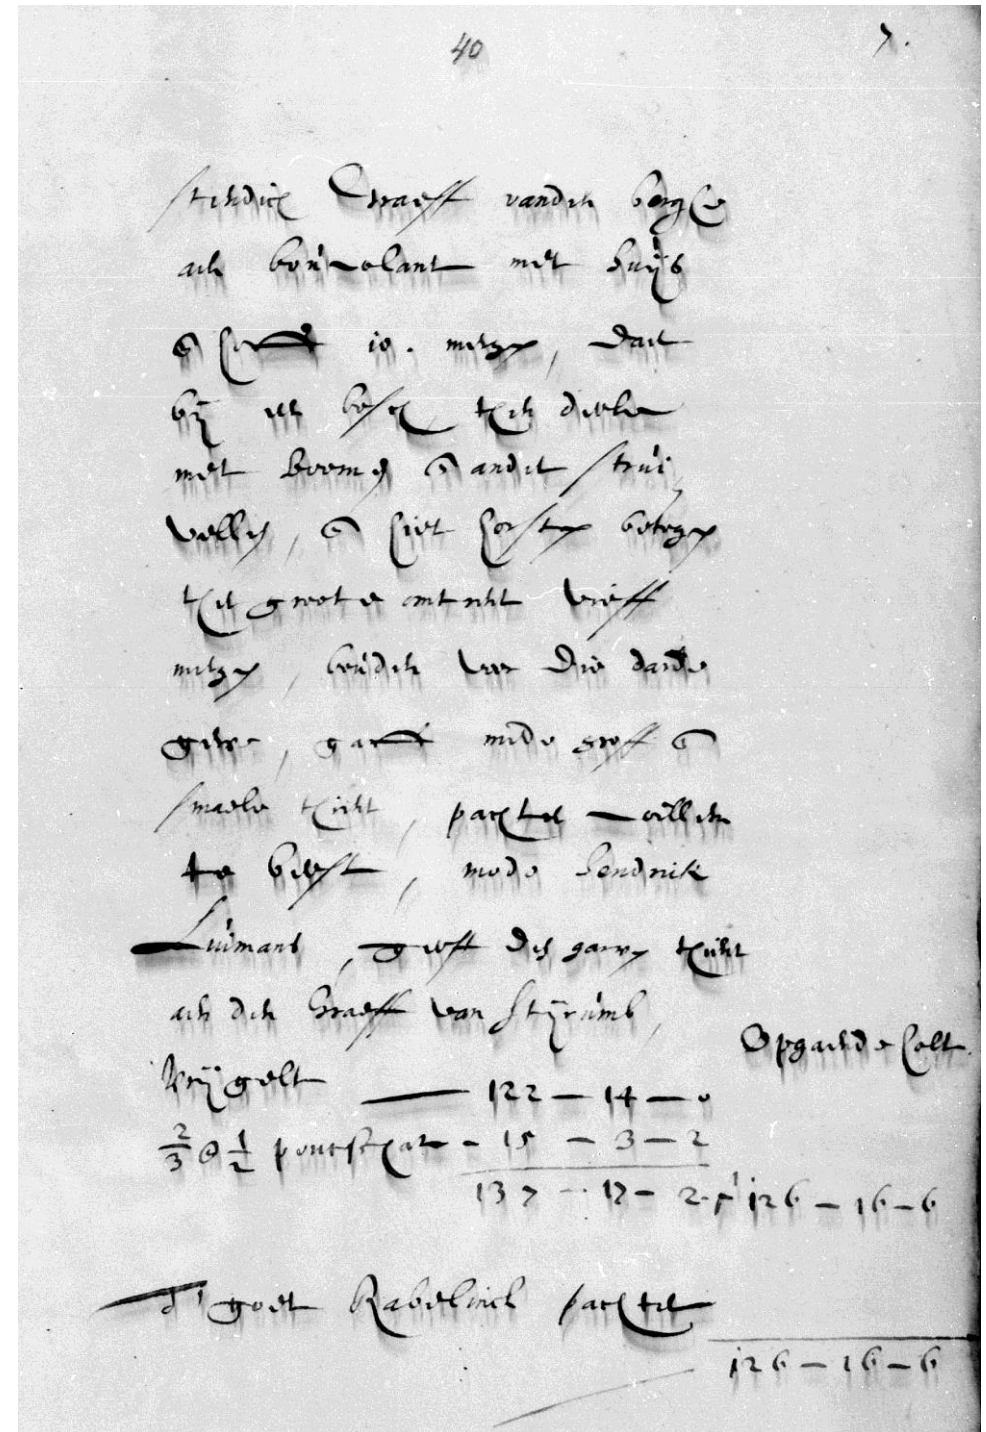 40
7.
stendick Graeff vanden berghe
aen bouwlant met huijs
en hoff 10. mergen, daer
bij een bosch tien delen
met boomen en ander strui
vellen, en hiet horsten bergen
ter groote omtrent vieff
mergen, bouden voer die darde
gerve, garff mede groff en
smaele thient, pachter willem
te biest, modo hendrick
Luimans, geeft des garven thient
aen den Graeff van Stijrumb,
Opgaende holt
vrij gelt — 122 — 14 — 0
2/3 @ 1/2 pontschat - 15 — 3 — 2
137 — 17 — 2 126 — 16 — 6
t' goet Rabelinck pachter
126 — 16 — 6